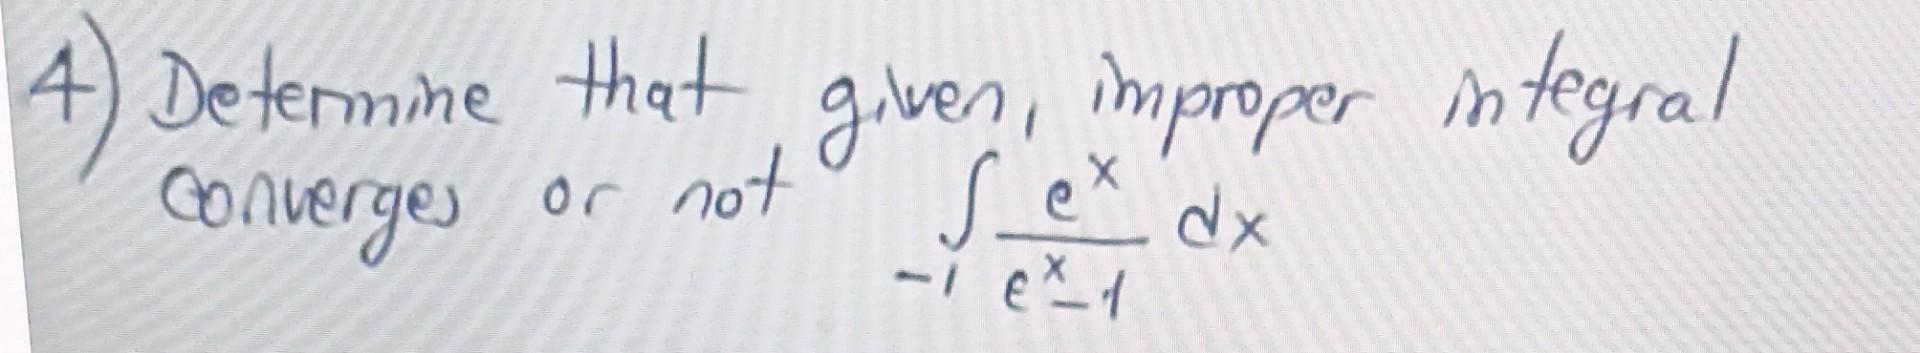 4) Determine that given, improper integral
converges or not ∫_{-1} e^x / (e^x - 1) dx